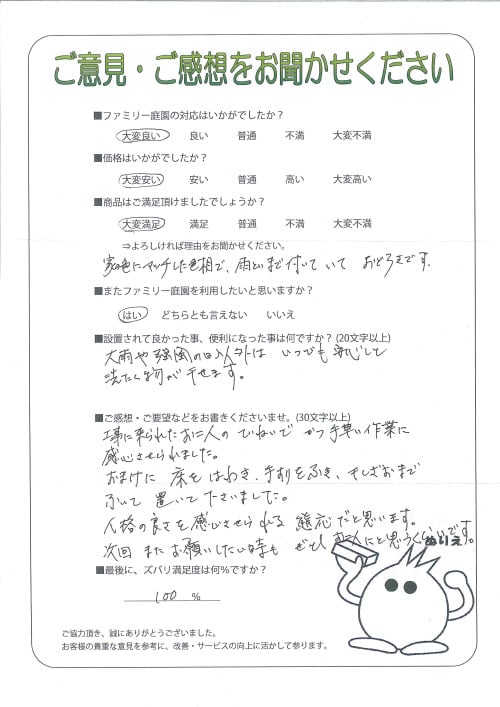 ご意見・ご感想をお聞かせください
■ファミリー庭園の対応はいかがでしたか？
大変良い 良い 普通 不満 大変不満
■価格はいかがでしたか？
大変安い 安い 普通 高い 大変高い
■商品はご満足頂けましたでしょうか？
大変満足 満足 普通 不満 大変不満
⇒よろしければ理由をお聞かせください。
家の色にマッチした色相で、雨といまで付いていて おどろきです.
■またファミリー庭園を利用したいと思いますか？
はい どちらとも言えない いいえ
■設置されて良かった事、便利になった事は何ですか？(20文字以上)
大雨や強風の日以外は いつでも安心して
洗たく物が干せます。
■ご感想・ご要望などをお書きくださいませ。(30文字以上)
工事に来られたお二人の ていねいで かつ手早い作業に
感心させられました。
おまけに 床を はわき、手すりをふき、干しざおまで
ふいて 置いて下さいました。
人格の良さを感心させられる 態応だと思います。
次回 また お願いしたい時も ぜひ お二人にと思うくらいです。
ぬりえ
■最後に、ズバリ満足度は何％ですか？
100 ％
ご協力頂き、誠にありがとうございました。
お客様の貴重な意見を参考に、改善・サービスの向上に活かして参ります。